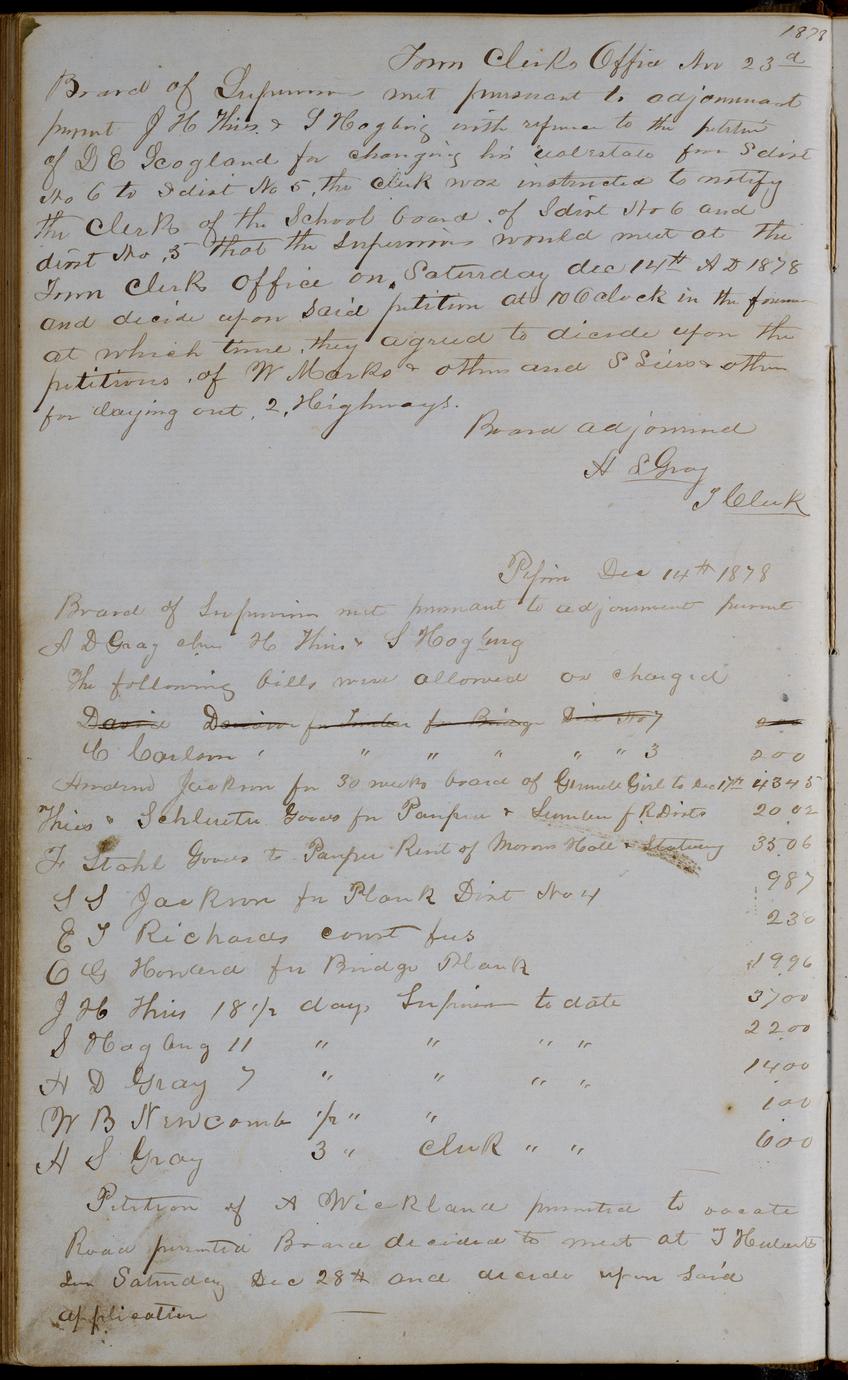 1878
Town Clerks Office Nov 23d
Board of Supervisors met pursuant to adjournment
present J H Thies & S Hogberg with reference to the petition
of D E Scogland for changing his realestate from S dist
No 6 to S dist No 5, the Clerk was instructed to notify
the Clerks of the School board of S dist No 6 and
dist No 5 that the Supervisors would meet at the
Town Clerks Office on Saturday dec 14th A D 1878
and decide upon said petition at 10 Oclock in the forenoon
at which time they agreed to dicide upon the
petitions of W Marks & others and S & others
for laying out 2 Highways.
Board adjourned
H S Gray
T Clerk
Pepin Dec 14th 1878
Board of Supervisors met pursuant to adjournment present
A D Gray chm H Thies & S Hogberg
The following bills were allowed as charged
David for Timber for Bridge Dist No 7
C Carlson " " " " " " 3 200
Andrew Jackson for 30 weeks board of Girl to Dec 17th 4345
Thies & Schlueter Goods for Pauper & Lumber f R Dists 20.02
F Stahl Goods to Pauper Rent of Morris Hall & 35.06
S S Jackson for Plank Dist No 4 987
E T Richards court fees 230
O G Howard for Bridge Plank 1996
J H Thies 18 1/2 days Supervisor to date 3700
S Hogberg 11 " " " " 2200
A D Gray 7 " " " " 1400
W B Newcomb 1/2 " " 100
H S Gray 3 " Clerk " " 600
Petition of A Wickland presented to vacate
Road presented Board decided to meet at T
on Saturday Dec 28th and decide upon said
application